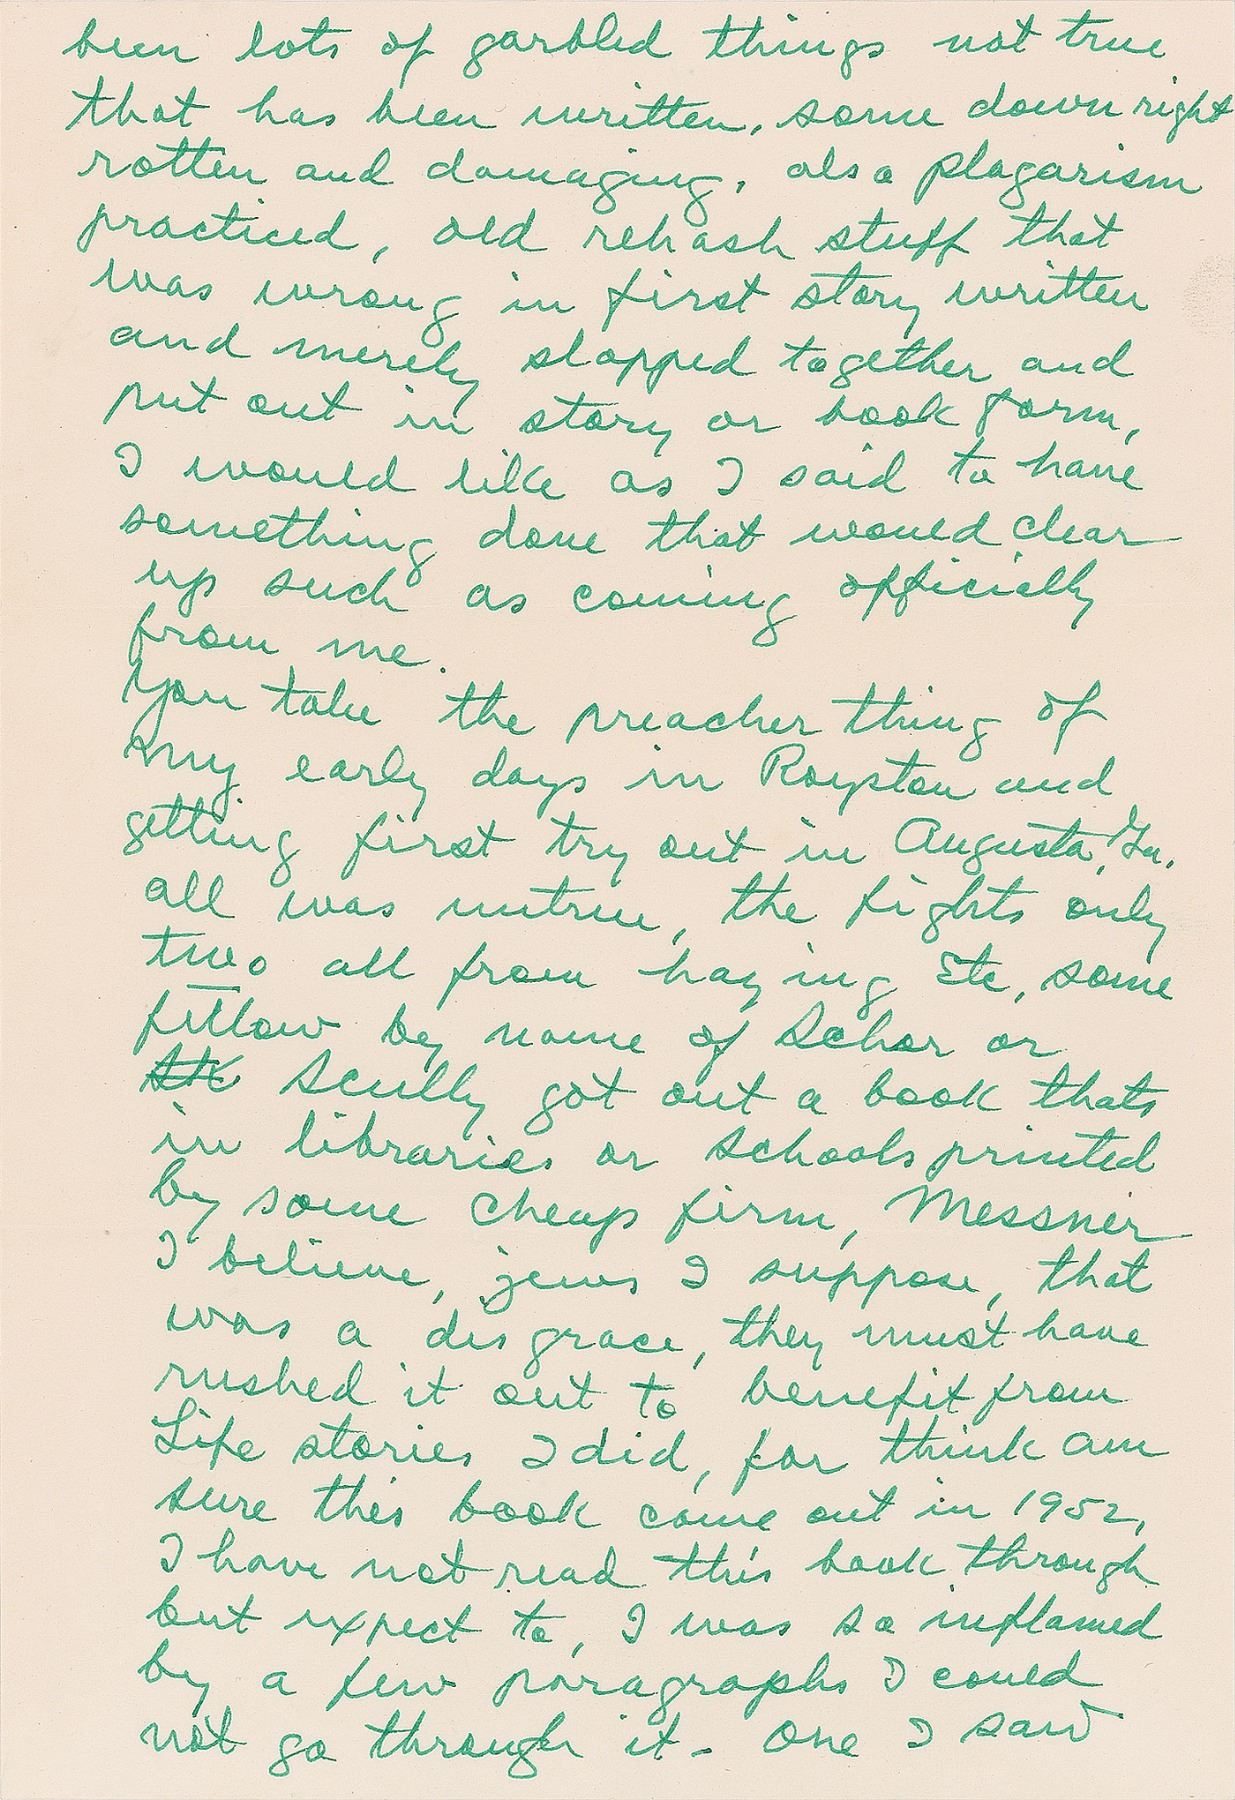 been lots of garbled things not true
that has been written, some down right
rotten and damaging, also plagarism
practiced, old rehash stuff that
was wrong in first story written
and merely slapped together and
put out in story or book form,
I would like as I said to have
something done that would clear
up such as coming officially
from me.
You take the preacher thing of
my early days in Royston and
getting first try out in Augusta, Ga.
all was untrue, the fights only
two all from haying Etc, some
fellow by name of Schor or
Scully got out a book thats
in libraries or schools printed
by some cheap firm, Messner
I believe, jews I suppose, that
was a disgrace, they must have
rushed it out to benefit from
Life stories I did, for think am
sure this book came out in 1952,
I have not read this book through
but expect to, I was so inflamed
by a few paragraphs I could
not go through it - one I saw